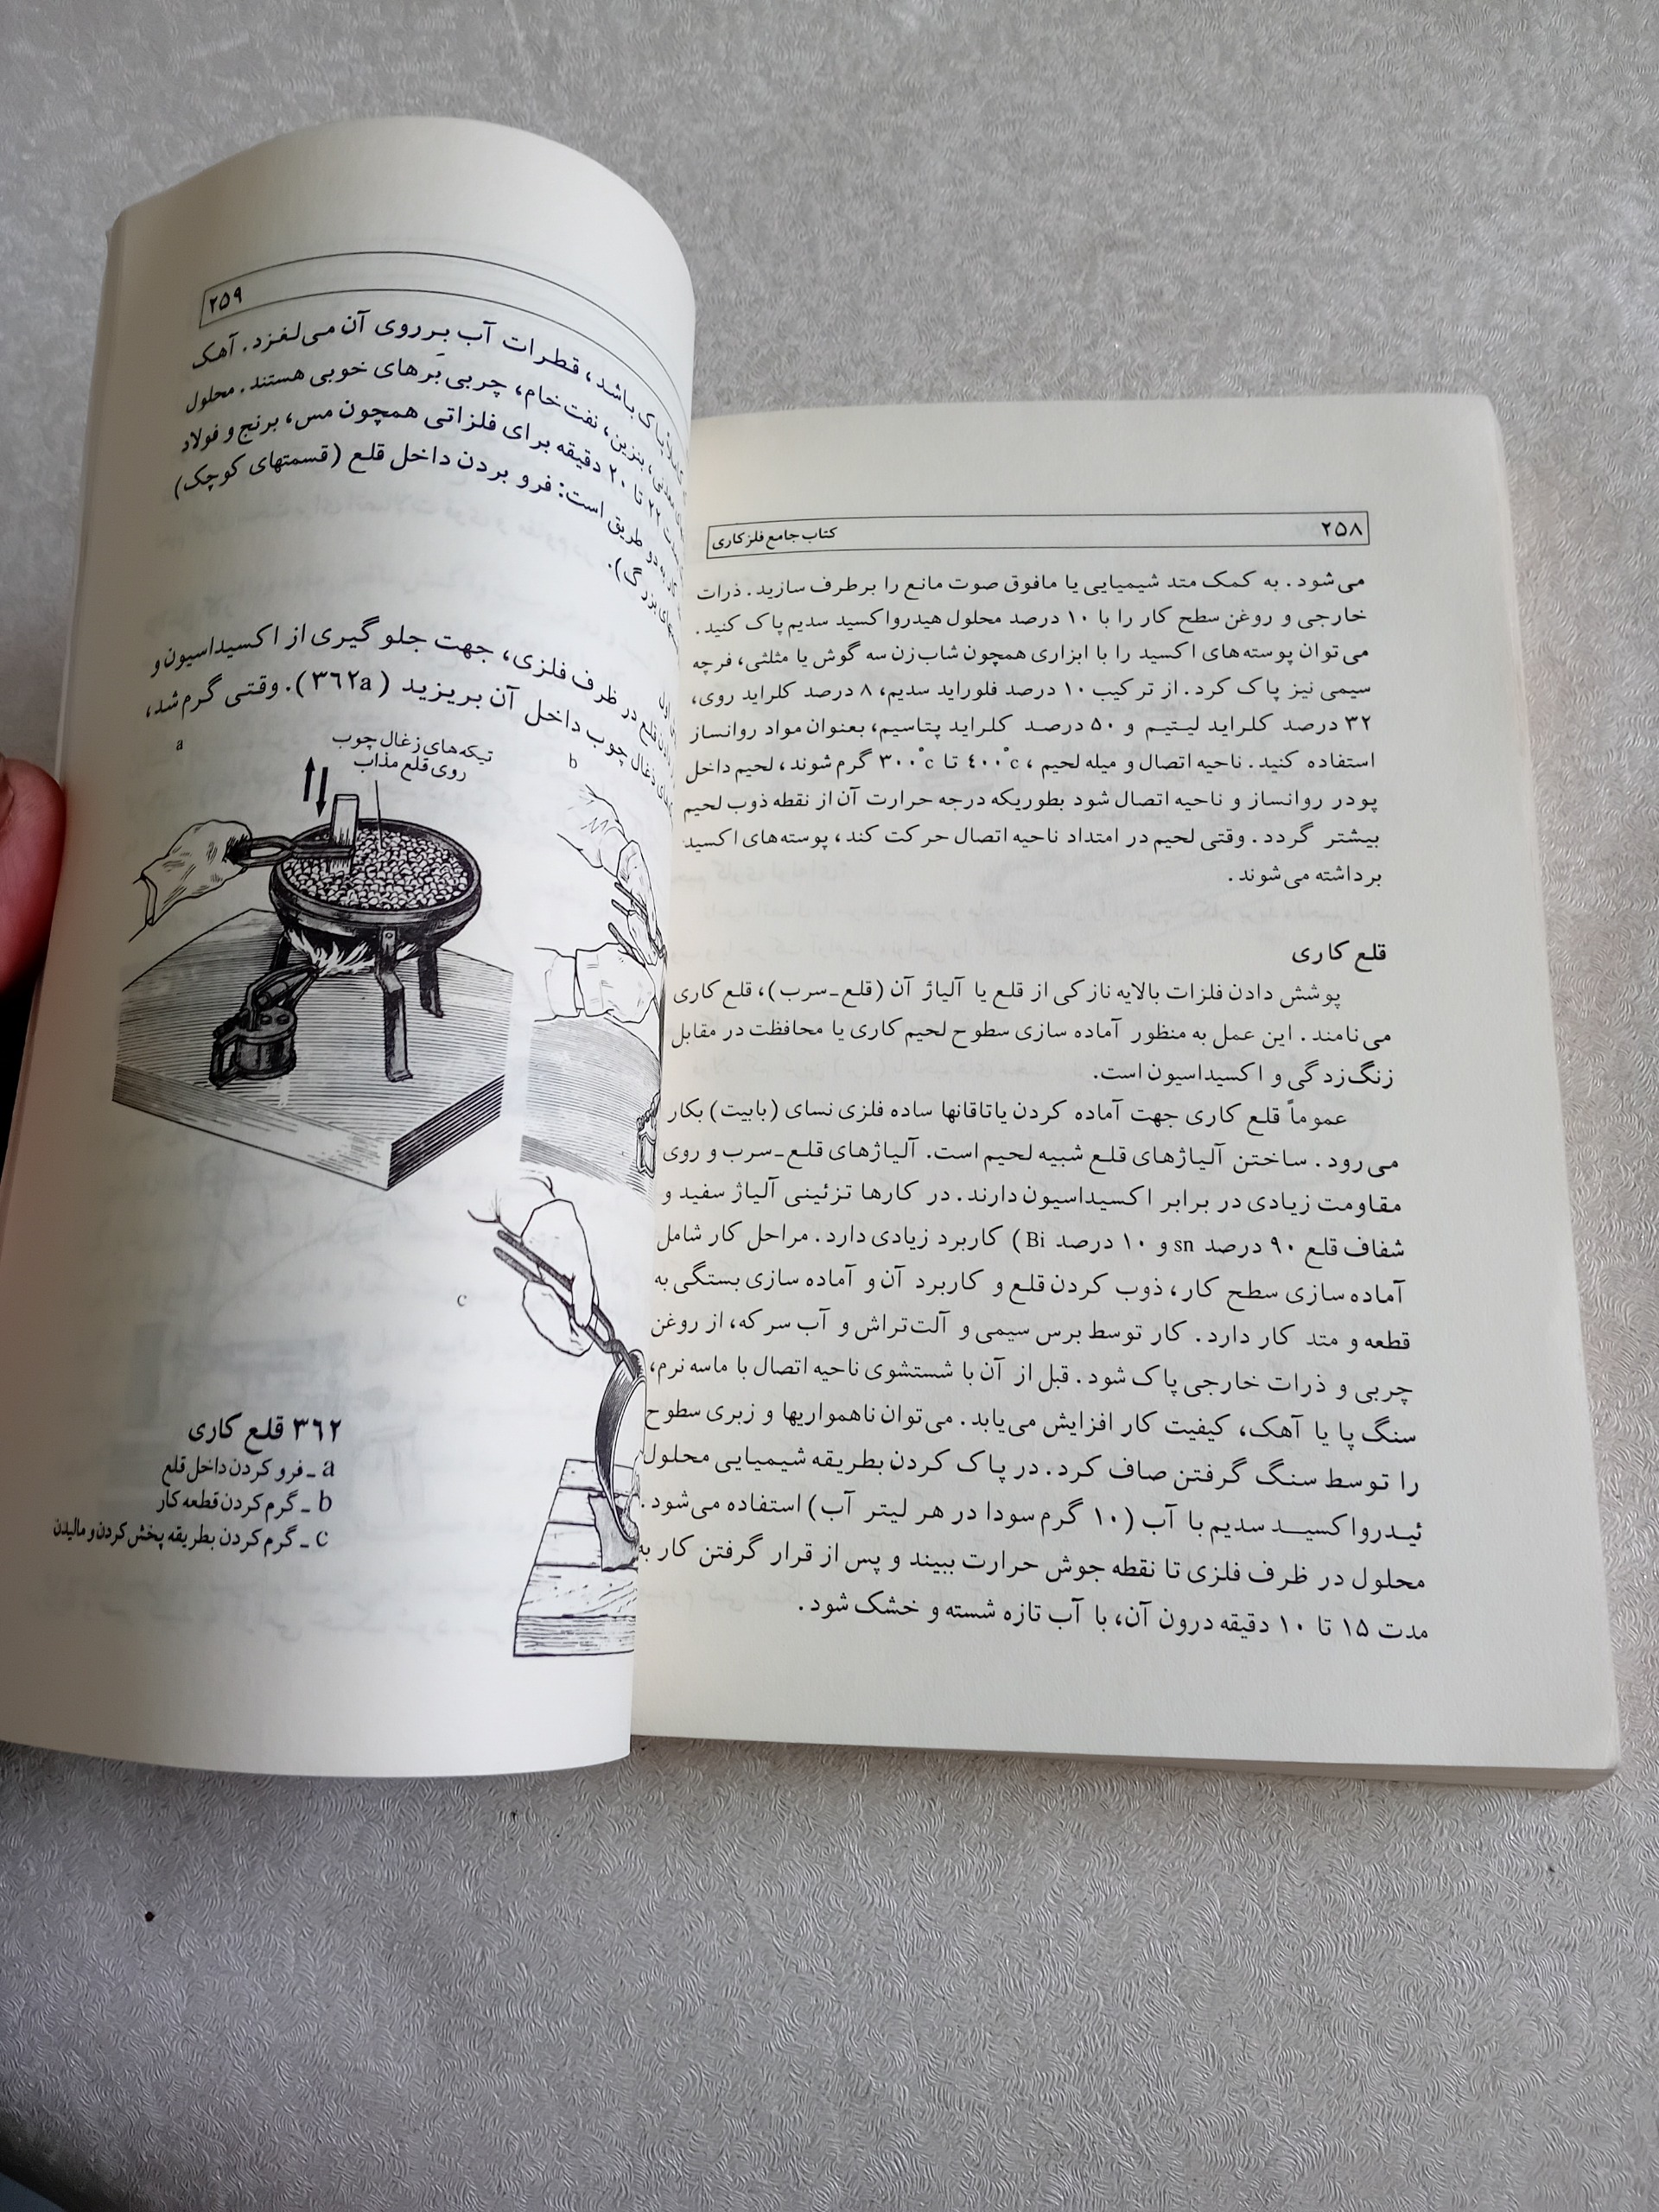 ۲۵۸
کتاب جامع فلزکاری
می‌شود. به کمک متد شیمیایی یا مافوق صوت مانع را برطرف سازید. ذرات
خارجی و روغن سطح کار را با ۱۰ درصد محلول هیدرواکسید سدیم پاک کنید.
می‌توان پوسته‌های اکسید را با ابزاری همچون شاب‌زن سه گوش یا مثلثی، فرچه
سیمی نیز پاک کرد. از ترکیب ۱۰ درصد فلوراید سدیم، ۸ درصد کلراید روی،
۳۲ درصد کلراید لیتیم و ۵۰ درصد کلراید پتاسیم، بعنوان مواد روانساز
استفاده کنید. ناحیه اتصال و میله لحیم، ۴۰۰°c تا ۳۰۰°c گرم شوند، لحیم داخل
پودر روانساز و ناحیه اتصال شود بطوریکه درجه حرارت آن از نقطه ذوب لحیم
بیشتر گردد. وقتی لحیم در امتداد ناحیه اتصال حرکت کند، پوسته‌های اکسید
برداشته می‌شوند.
قلع کاری
پوشش دادن فلزات بالایه نازکی از قلع یا آلیاژ آن (قلع-سرب)، قلع کاری
می‌نامند. این عمل به منظور آماده سازی سطوح لحیم کاری یا محافظت در مقابل
زنگ‌زدگی و اکسیداسیون است.
عموماً قلع کاری جهت آماده کردن یاتاقانها ساده فلزی نسای (بابیت) بکار
می‌رود. ساختن آلیاژهای قلع شبیه لحیم است. آلیاژهای قلع-سرب و روی
مقاومت زیادی در برابر اکسیداسیون دارند. در کارها تزئینی آلیاژ سفید و
شفاف قلع ۹۰ درصد sn و ۱۰ درصد Bi) کاربرد زیادی دارد. مراحل کار شامل
آماده سازی سطح کار، ذوب کردن قلع و کاربرد آن و آماده سازی بستگی به
قطعه و متد کار دارد. کار توسط برس سیمی و آلت‌تراش و آب سرکه، از روغن
چربی و ذرات خارجی پاک شود. قبل از آن با شستشوی ناحیه اتصال با ماسه نرم،
سنگ پا یا آهک، کیفیت کار افزایش می‌یابد. می‌توان ناهمواریها و زبری سطوح
را توسط سنگ گرفتن صاف کرد. در پاک کردن بطریقه شیمیایی محلول
ئیدرواکسید سدیم با آب (۱۰ گرم سودا در هر لیتر آب) استفاده می‌شود.
محلول در ظرف فلزی تا نقطه جوش حرارت ببیند و پس از قرار گرفتن کار به
مدت ۱۵ تا ۱۰ دقیقه درون آن، با آب تازه شسته و خشک شود.
۲۵۹
باشد، قطرات آب بر روی آن می‌لغزد. آهک
بنزین، نفت خام، چربی بَرهای خوبی هستند. محلول
۲۲ تا ۲۰ دقیقه برای فلزاتی همچون مس، برنج و فولاد
دو طریق است: فرو بردن داخل قلع (قسمتهای کوچک)
بزرگ).
قلع در ظرف فلزی، جهت جلوگیری از اکسیداسیون و
زغال چوب داخل آن بریزید (۳۶۲a). وقتی گرم شد،
a
تیکه‌های زغال چوب
روی قلع مذاب
b
c
۳۶۲ قلع کاری
a - فرو کردن داخل قلع
b - گرم کردن قطعه کار
c - گرم کردن بطریقه پخش کردن و مالیدن